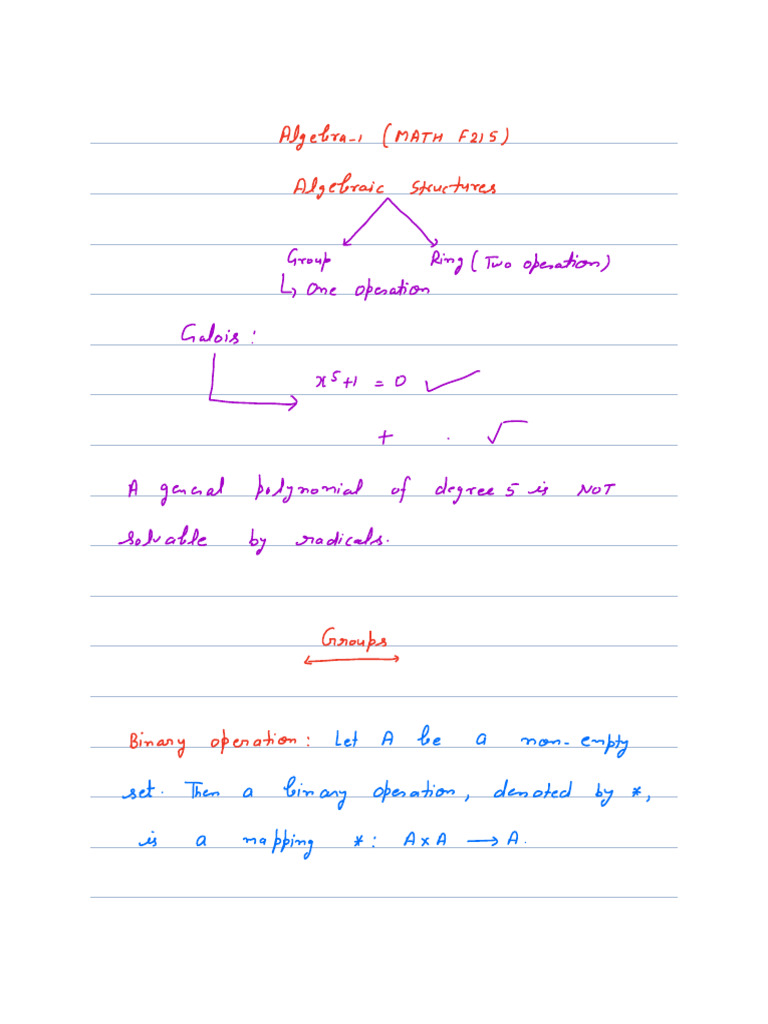 Algebra-1 (MATH F215)
Algebraic Structures
Group Ring (Two operation)
↳ One operation
Galois:
x⁵+1 = 0 ✓
+ . √
A general polynomial of degree 5 is NOT
solvable by radicals.
Groups
Binary operation: Let A be a non-empty
set. Then a binary operation, denoted by *,
is a mapping *: A×A → A.